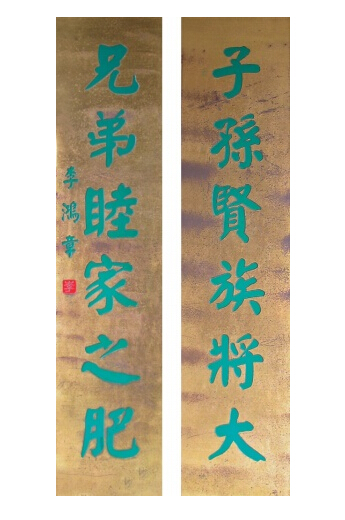 子孫賢族將大
兄弟睦家之肥
李鴻章
李